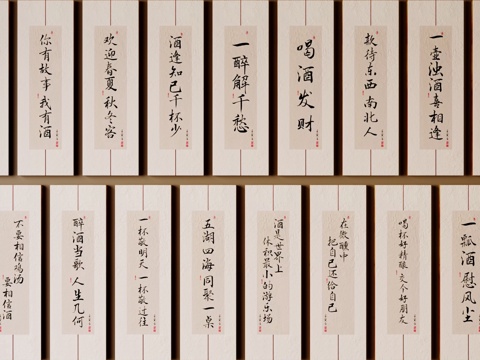 你有故事 我有酒
欢迎春夏 秋冬客
酒逢知己千杯少
一醉解千愁
喝酒发财
款待东西 南北人
一壶浊酒喜相逢
不要相信鸡汤
要相信酒
醉酒当歌 人生几何
一杯敬明天 一杯敬过往
五湖四海同聚一桌
酒是世界上
体积最小的游乐场
在微醺中
把自己还给自己
喝杯好精酿 交个好朋友
一瓢酒慰风尘